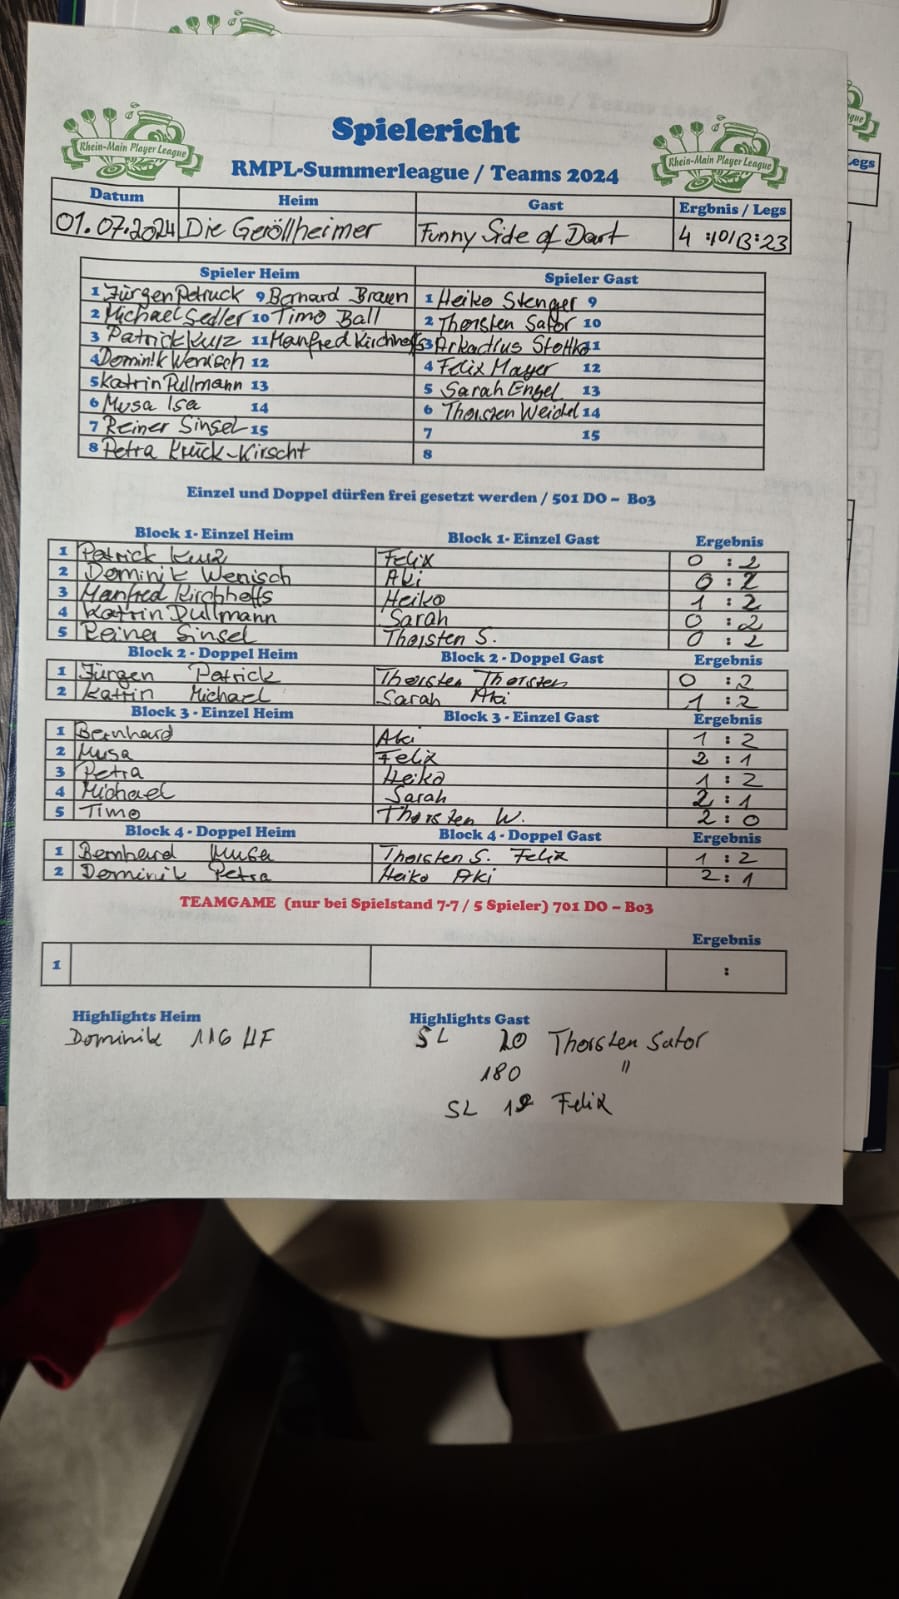 Spielericht
Rhein-Main Player League Rhein-Main Player League
RMPL-Summerleague / Teams 2024
Legs
Datum Heim Gast Ergbnis / Legs
01.07.2024 Die Geröllheimer Funny Side of Dart 4 :10/13:23
Spieler Heim Spieler Gast
1 Jürgen Petruck 9 Bernard Braun 1 Heiko Stenger 9
2 Michael Sedler 10 Timo Ball 2 Thorsten Sator 10
3 Patrick Kurz 11 Manfred Kirchhoffs 3 Arkadius Stottko 11
4 Dominik Wenisch 12 4 Felix Mayer 12
5 Katrin Pullmann 13 5 Sarah Engel 13
6 Musa Isa 14 6 Thorsten Weichel 14
7 Reiner Sinsel 15 7 15
8 Petra Krück-Kirscht 8
Einzel und Doppel dürfen frei gesetzt werden / 501 DO – Bo3
Block 1- Einzel Heim Block 1- Einzel Gast Ergebnis
1 Patrick Kurz Felix 0 : 2
2 Dominik Wenisch Aki 0 : 2
3 Manfred Kirchhoffs Heiko 1 : 2
4 Katrin Pullmann Sarah 0 : 2
5 Reiner Sinsel Thorsten S. 0 : 2
Block 2 - Doppel Heim Block 2 - Doppel Gast Ergebnis
1 Jürgen Patrick Thorsten Thorsten 0 : 2
2 Katrin Michael Sarah Aki 1 : 2
Block 3 - Einzel Heim Block 3 - Einzel Gast Ergebnis
1 Bernhard Aki 1 : 2
2 Musa Felix 2 : 1
3 Petra Heiko 1 : 2
4 Michael Sarah 2 : 1
5 Timo Thorsten W. 2 : 0
Block 4 - Doppel Heim Block 4 - Doppel Gast Ergebnis
1 Bernhard Musa Thorsten S. Felix 1 : 2
2 Dominik Petra Heiko Aki 2 : 1
TEAMGAME (nur bei Spielstand 7-7 / 5 Spieler) 701 DO – Bo3
Ergebnis
1 :
Highlights Heim Highlights Gast
Dominik 116 HF SL 20 Thorsten Sator
180 "
SL Felix